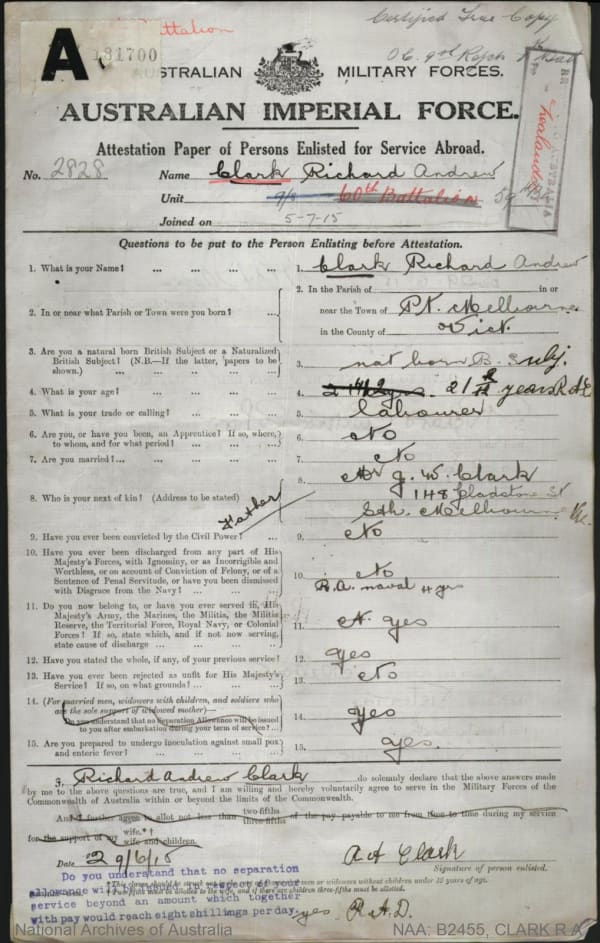 Battalion
Certified True Copy
A
131700
AUSTRALIAN MILITARY FORCES.
AUSTRALIAN IMPERIAL FORCE.
Attestation Paper of Persons Enlisted for Service Abroad.
No. 2828 Name Clark Richard Andrew
Unit 9/8 60th Battalion 59
Joined on 5-7-15
Questions to be put to the Person Enlisting before Attestation.
1. What is your Name? ... ... ... ... 1. Clark Richard Andrew
2. In or near what Parish or Town were you born? ... 2. In the Parish of in or
near the Town of Pt. Melbourne
in the County of Vict.
3. Are you a natural born British Subject or a Naturalized
British Subject? (N.B.—If the latter, papers to be
shown.) ... ... ... ... ... 3. nat born B. Subj.
4. What is your age? ... ... ... ... 4. 21 years
5. What is your trade or calling? ... ... ... 5. labourer
6. Are you, or have you been, an Apprentice? If so, where,
to whom, and for what period? ... ... ... 6. No
7. Are you married?... ... ... ... ... 7. No
8. Who is your next of kin? (Address to be stated) Father 8. Mr G. W. Clark
148 Gladstone St
Sth. Melbourne Vic.
9. Have you ever been convicted by the Civil Power? ... 9. No
10. Have you ever been discharged from any part of His
Majesty's Forces, with Ignominy, or as Incorrigible and
Worthless, or on account of Conviction of Felony, or of a
Sentence of Penal Servitude, or have you been dismissed
with Disgrace from the Navy? ... ... ... 10. No
R.A. naval 4 yrs
11. Do you now belong to, or have you ever served in, His
Majesty's Army, the Marines, the Militia, the Militia
Reserve, the Territorial Force, Royal Navy, or Colonial
Forces? If so, state which, and if not now serving,
state cause of discharge ... ... ... ... 11. yes
12. Have you stated the whole, if any, of your previous service? 12. yes
13. Have you ever been rejected as unfit for His Majesty's
Service? If so, on what grounds? ... ... ... 13. No
14. (For married men, widowers with children, and soldiers who
are the sole support of widowed mother)—
Do you understand that no Separation Allowance will be issued
to you after embarkation during your term of service? ... 14. yes
15. Are you prepared to undergo inoculation against small pox
and enteric fever? ... ... ... ... 15. yes.
I, Richard Andrew Clark do solemnly declare that the above answers made
by me to the above questions are true, and I am willing and hereby voluntarily agree to serve in the Military Forces of the
Commonwealth of Australia within or beyond the limits of the Commonwealth.
And I further agree to allot not less than two-fifths three-fifths of the pay payable to me from time to time during my service
for the support of my wife.*† wife and children.
Date 29/6/15 R A Clark
Signature of person enlisted.
Do you understand that no separation
allowance will be issued in respect of your
service beyond an amount which together
with pay would reach eight shillings per day. yes R.A.D.
National Archives of Australia NAA: B2455, CLARK R A